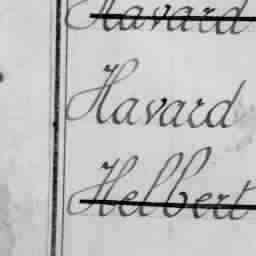 Havard
Havard
Helbert